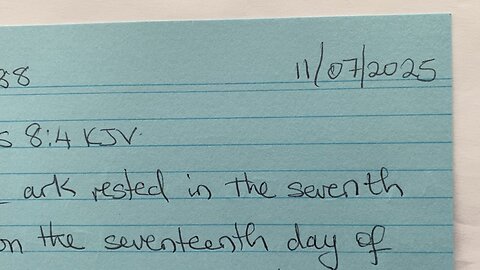 38 11/07/2025
s 8:4 KJV.
ark rested in the seventh
on the seventeenth day of